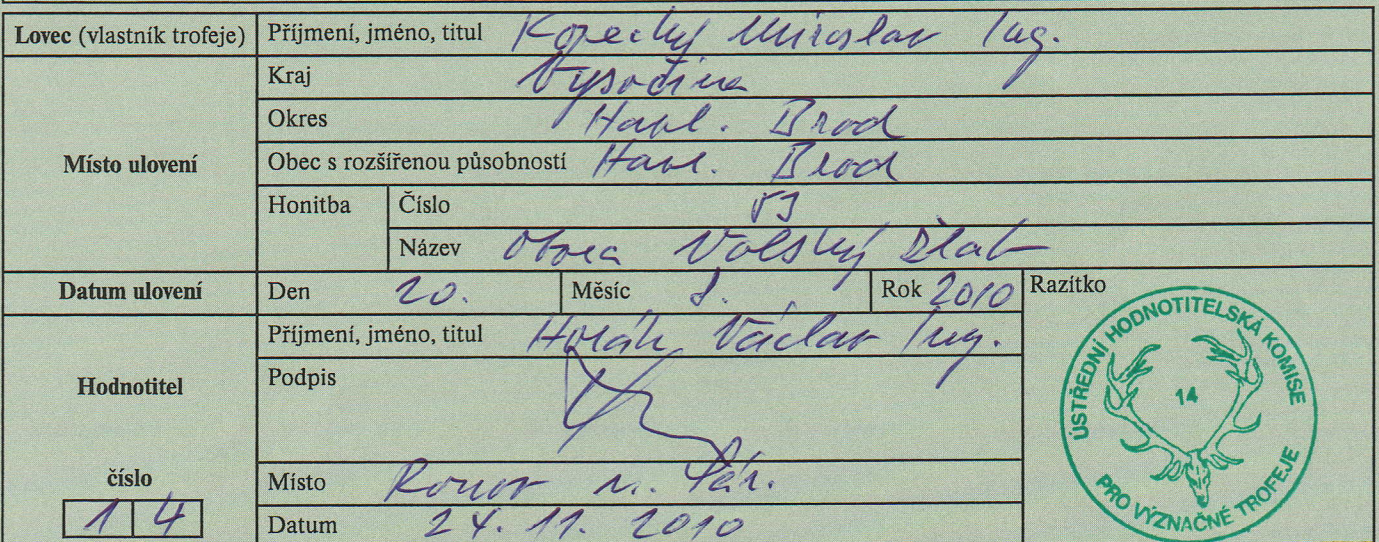 Lovec (vlastník trofeje) Příjmení, jméno, titul Kopecký Miroslav Ing.
Místo ulovení
Kraj Vysočina
Okres Havl. Brod
Obec s rozšířenou působností Havl. Brod
Honitba Číslo
Název Obora Volský Žlab
Datum ulovení Den 20. Měsíc 8. Rok 2010 Razítko
Hodnotitel
Příjmení, jméno, titul Horák Václav Ing.
Podpis
číslo
14
Místo Ronov n. Sáz.
Datum 24. 11. 2010
ÚSTŘEDNÍ HODNOTITELSKÁ KOMISE
14
PRO VÝZNAČNÉ TROFEJE